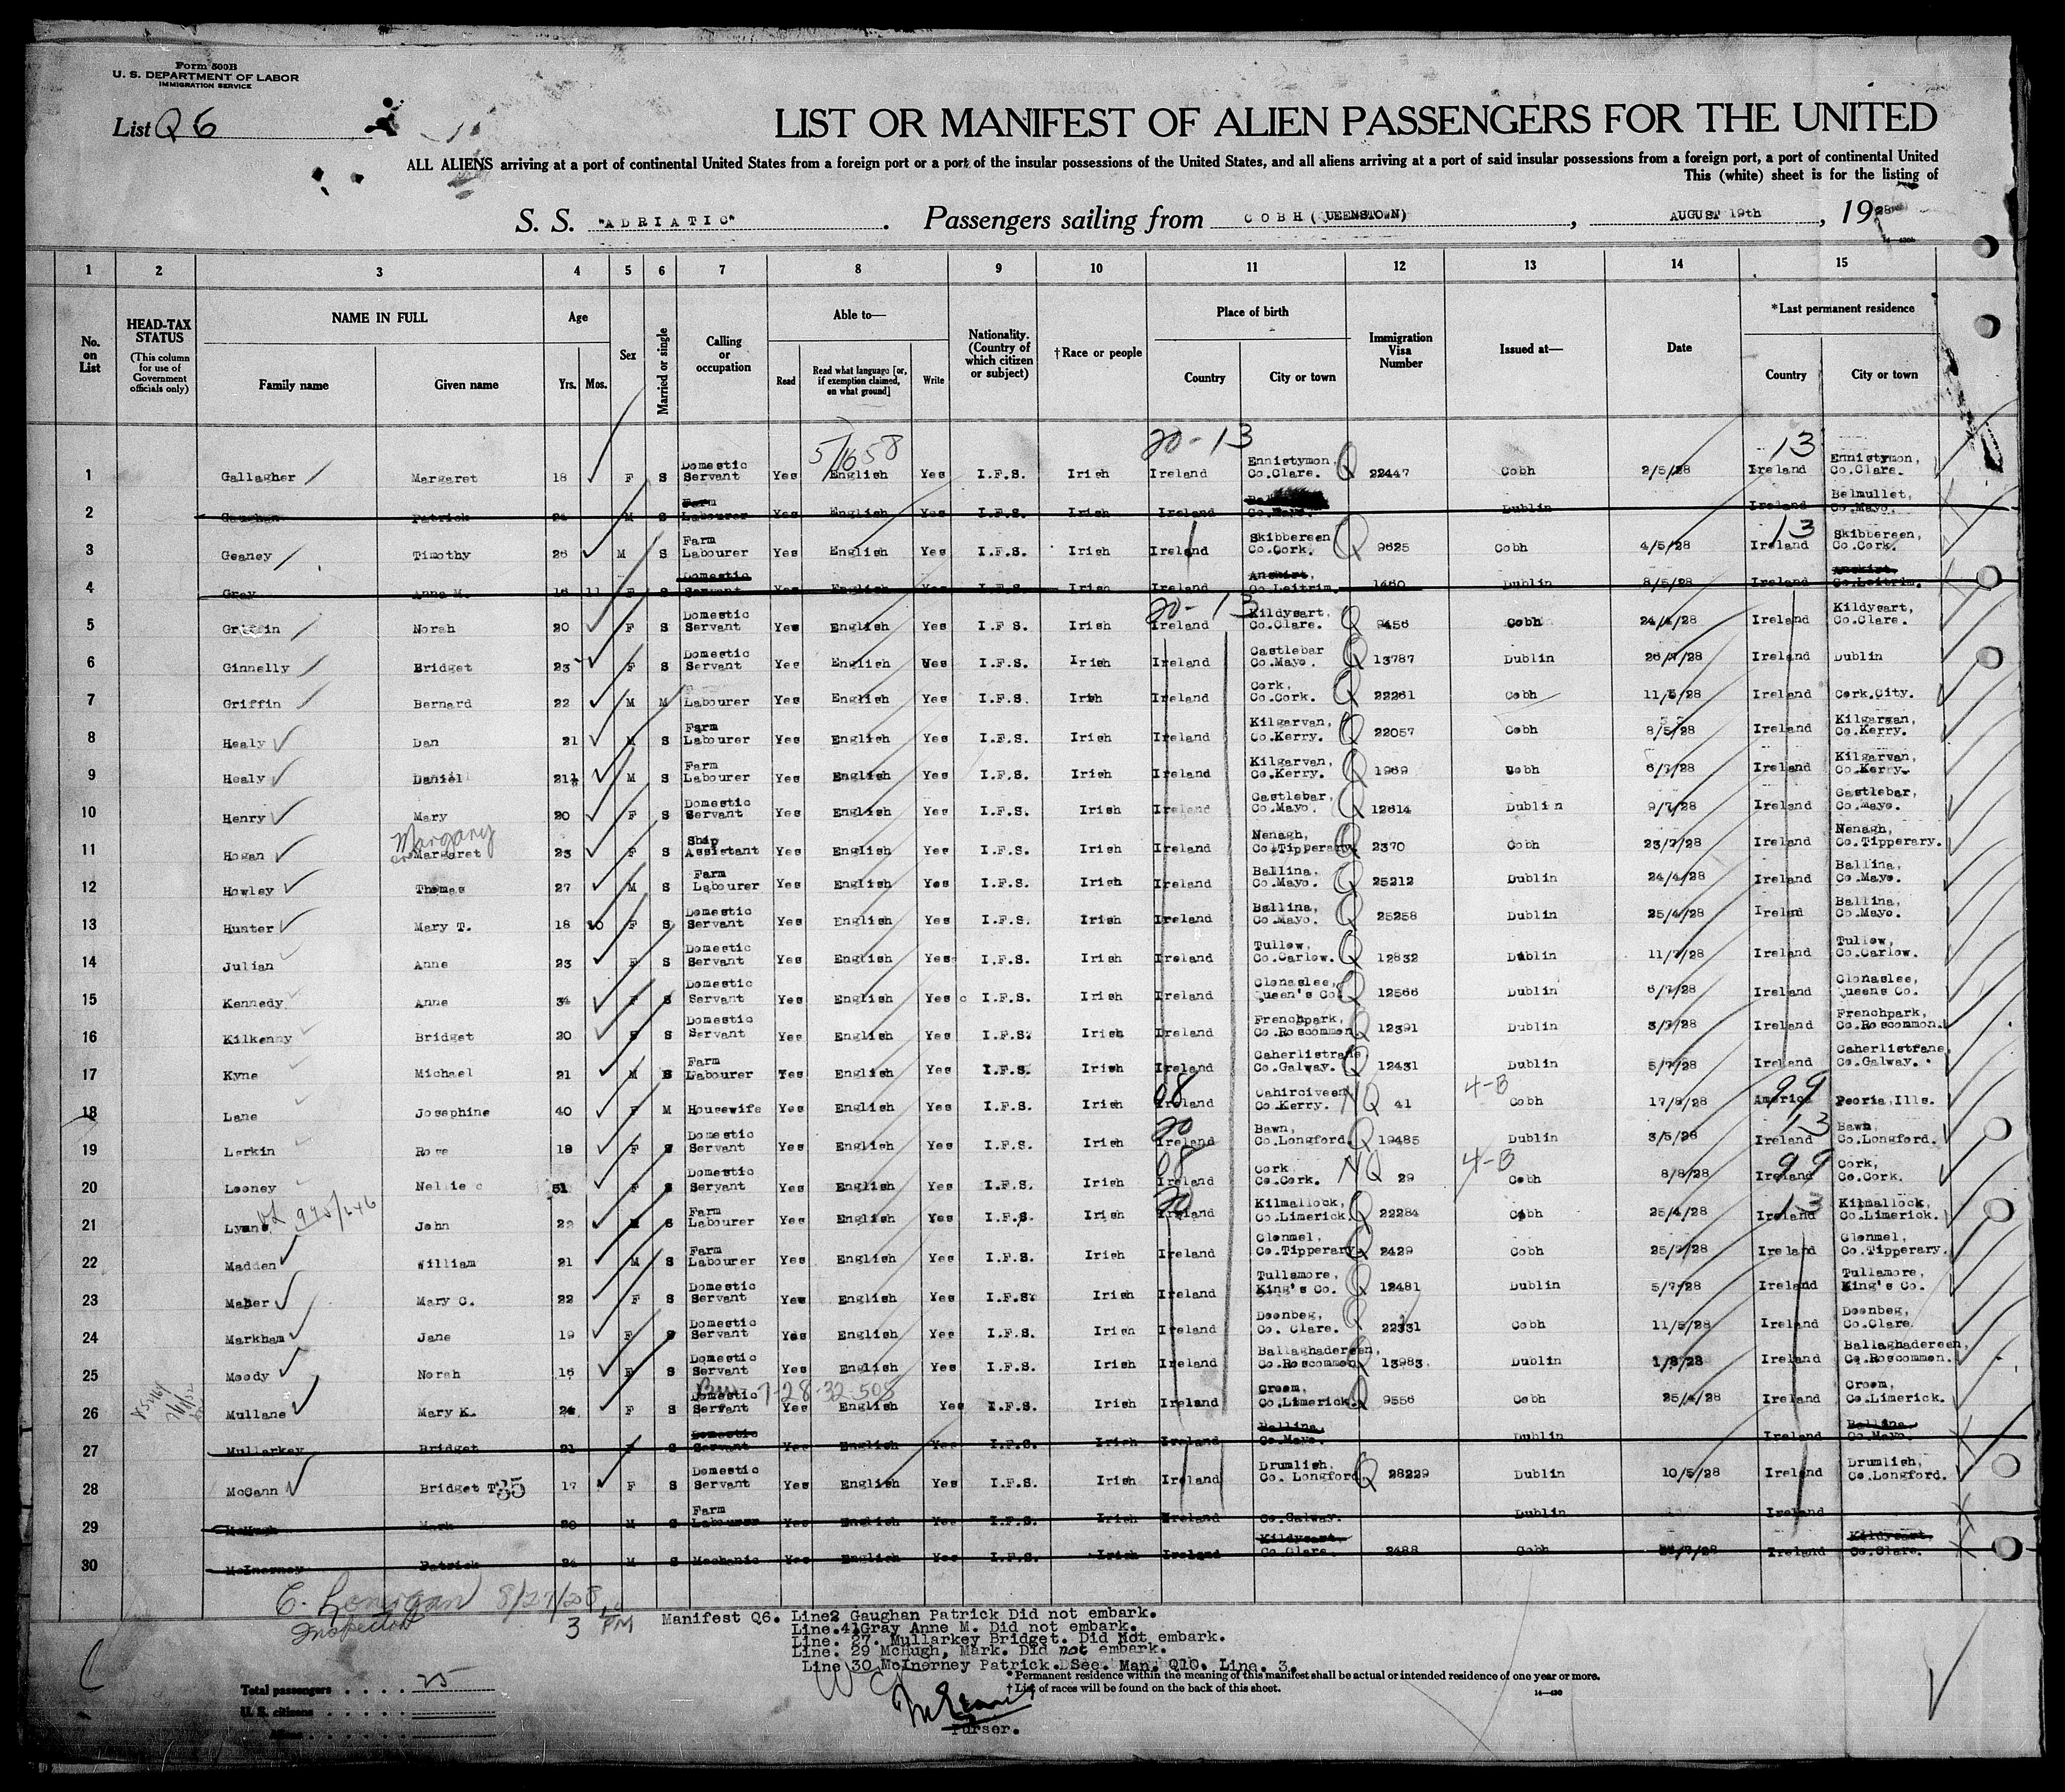 Form 500B
U. S. DEPARTMENT OF LABOR
IMMIGRATION SERVICE
List Q 6
LIST OR MANIFEST OF ALIEN PASSENGERS FOR THE UNITED
ALL ALIENS arriving at a port of continental United States from a foreign port or a port of the insular possessions of the United States, and all aliens arriving at a port of said insular possessions from a foreign port, a port of continental United
This (white) sheet is for the listing of
S. S. "ADRIATIC". Passengers sailing from COBH (QUEENSTOWN), AUGUST 19th, 1928
1 2 3 4 5 6 7 8 9 10 11 12 13 14 15
No. on List
HEAD-TAX STATUS (This column for use of Government officials only)
NAME IN FULL Family name Given name
Age Yrs. Mos.
Sex
Married or single
Calling or occupation
Able to— Read Read what language [or, if exemption claimed, on what ground] Write
Nationality. (Country of which citizen or subject)
†Race or people
Place of birth Country City or town
Immigration Visa Number
Issued at—
Date
*Last permanent residence Country City or town
5/1658 20-13 13
1 Gallagher Margaret 18 F S Domestic Servant Yes English Yes I.F.S. Irish Ireland Ennistymon, Co.Clare. Q 22447 Cobh 2/5/28 Ireland Ennistymon, Co.Clare.
2 Gaughan Patrick 24 M S Farm Labourer Yes English Yes I.F.S. Irish Ireland Co.Mayo. Dublin Ireland Belmullet, Co.Mayo.
3 Geaney Timothy 26 M S Farm Labourer Yes English Yes I.F.S. Irish Ireland Skibbereen Co.Cork. Q 9625 Cobh 4/5/28 13 Ireland Skibbereen, Co.Cork.
4 Gray Anne M. 16 11 F S Domestic Servant Yes English Yes I.F.S. Irish Ireland Co.Leitrim. 1460 Dublin 8/5/28 Ireland Co.Leitrim.
5 Griffin Norah 20 F S Domestic Servant Yes English Yes I.F.S. Irish 20-13 Ireland Kildysart, Co.Clare. Q 9456 Cobh 24/4/28 Ireland Kildysart, Co.Clare.
6 Ginnelly Bridget 23 F S Domestic Servant Yes English Yes I.F.S. Irish Ireland Castlebar Co.Mayo. Q 13787 Dublin 26/7/28 Ireland Dublin
7 Griffin Bernard 22 M M Labourer Yes English Yes I.F.S. Irish Ireland Cork, Co.Cork. Q 22261 Cobh 11/5/28 Ireland Cork City.
8 Healy Dan 21 M S Farm Labourer Yes English Yes I.F.S. Irish Ireland Kilgarvan, Co.Kerry. Q 22057 Cobh 8/5/28 Ireland Kilgarvan, Co.Kerry.
9 Healy Daniel 21½ M S Farm Labourer Yes English Yes I.F.S. Irish Ireland Kilgarvan, Co.Kerry. Q 1969 Cobh 6/7/28 Ireland Kilgarvan, Co.Kerry.
10 Henry Mary 20 F S Domestic Servant Yes English Yes I.F.S. Irish Ireland Castlebar, Co.Mayo. Q 12614 Dublin 9/7/28 Ireland Castlebar, Co.Mayo.
11 Hogan Margary or Margaret 23 F S Shop Assistant Yes English Yes I.F.S. Irish Ireland Nenagh, Co.Tipperary Q 2370 Cobh 23/7/28 Ireland Nenagh, Co.Tipperary.
12 Howley Thomas 27 M S Farm Labourer Yes English Yes I.F.S. Irish Ireland Ballina, Co.Mayo. Q 25212 Dublin 24/4/28 Ireland Ballina, Co.Mayo.
13 Hunter Mary T. 18 10 F S Domestic Servant Yes English Yes I.F.S. Irish Ireland Ballina, Co.Mayo. Q 25258 Dublin 25/4/28 Ireland Ballina, Co.Mayo.
14 Julian Anne 23 F S Domestic Servant Yes English Yes I.F.S. Irish Ireland Tullow, Co.Carlow. Q 12832 Dublin 11/7/28 Ireland Tullow, Co.Carlow.
15 Kennedy Anne 34 F S Domestic Servant Yes English Yes I.F.S. Irish Ireland Clonaslee, Queen's Co. Q 12566 Dublin 6/7/28 Ireland Clonaslee, Queens Co.
16 Kilkenny Bridget 20 S S Domestic Servant Yes English Yes I.F.S. Irish Ireland Frenchpark, Co.Roscommon Q 12391 Dublin 3/7/28 Ireland Frenchpark, Co.Roscommon.
17 Kyne Michael 21 M S Farm Labourer Yes English Yes I.F.S. Irish Ireland Caherlistrane Co.Galway. Q 12431 Dublin 5/7/28 Ireland Caherlistrane, Co.Galway.
18 Lane Josephine 40 F M Housewife Yes English Yes I.F.S. Irish 08 Ireland Cahirciveen Co.Kerry. NQ 41 4-B Cobh 17/8/28 99 America Peoria, Ills.
19 Larkin Rose 18 F S Domestic Servant Yes English Yes I.F.S. Irish 20 Ireland Bawn, Co.Longford. Q 19485 Dublin 3/5/28 13 Ireland Bawn, Co.Longford.
20 Looney Nellie 51 F S Domestic Servant Yes English Yes I.F.S. Irish 08 Ireland Cork Co.Cork. NQ 29 4-B Cobh 8/8/28 99 Ireland Cork, Co.Cork.
21 Lyans John 22 M S Farm Labourer Yes English Yes I.F.S. Irish 20 Ireland Kilmallock, Co.Limerick. Q 22284 Cobh 25/4/28 13 Ireland Kilmallock, Co.Limerick.
22 Madden William 21 M S Farm Labourer Yes English Yes I.F.S. Irish Ireland Clonmel, Co.Tipperary Q 2429 Cobh 25/7/28 Ireland Clonmel, Co.Tipperary.
23 Maher Mary C. 22 F S Domestic Servant Yes English Yes I.F.S. Irish Ireland Tullamore, King's Co. Q 12481 Dublin 5/7/28 Ireland Tullamore, King's Co.
24 Markham Jane 19 F S Domestic Servant Yes English Yes I.F.S. Irish Ireland Doonbeg, Co. Clare. Q 22331 Cobh 11/5/28 Ireland Doonbeg, Co.Clare.
25 Moody Norah 16 F S Domestic Servant Yes English Yes I.F.S. Irish Ireland Ballaghadereen, Co.Roscommon Q 13983 Dublin 1/8/28 Ireland Ballaghadereen, Co.Roscommon.
7-28-32 505
26 Mullane Mary K. 24 F S Domestic Servant Yes English Yes I.F.S. Irish Ireland Croom, Co.Limerick. Q 9556 Cobh 25/4/28 Ireland Croom, Co.Limerick.
27 Mullarkey Bridget 21 F S Domestic Servant Yes English Yes I.F.S. Irish Ireland Ballina, Co.Mayo. Dublin Ireland Ballina, Co.Mayo.
28 McCann Bridget T. 35 17 F S Domestic Servant Yes English Yes I.F.S. Irish Ireland Drumlish, Co. Longford Q 28229 Dublin 10/5/28 Ireland Drumlish, Co.Longford.
29 McHugh Mark 20 M S Farm Labourer Yes English Yes I.F.S. Irish Ireland Co.Galway. Dublin Ireland
30 McInerney Patrick 24 M S Mechanic Yes English Yes I.F.S. Irish Ireland Kildysart, Co.Clare. 2488 Cobh Ireland Kildysart, Co.Clare.
C. Lonergan 8/27/28
Inspector 3 PM
Manifest Q6. Line2 Gaughan Patrick Did not embark.
Line.4 Gray Anne M. Did not embark.
Line. 27. Mullarkey Bridget. Did not embark.
Line. 29 McHugh, Mark. Did not embark.
Line 30 McInerney Patrick. See. Man. Q10. Line. 3.
*Permanent residence within the meaning of this manifest shall be actual or intended residence of one year or more.
†List of races will be found on the back of this sheet.
Total passengers 25
U. S. citizens
Aliens
Purser.